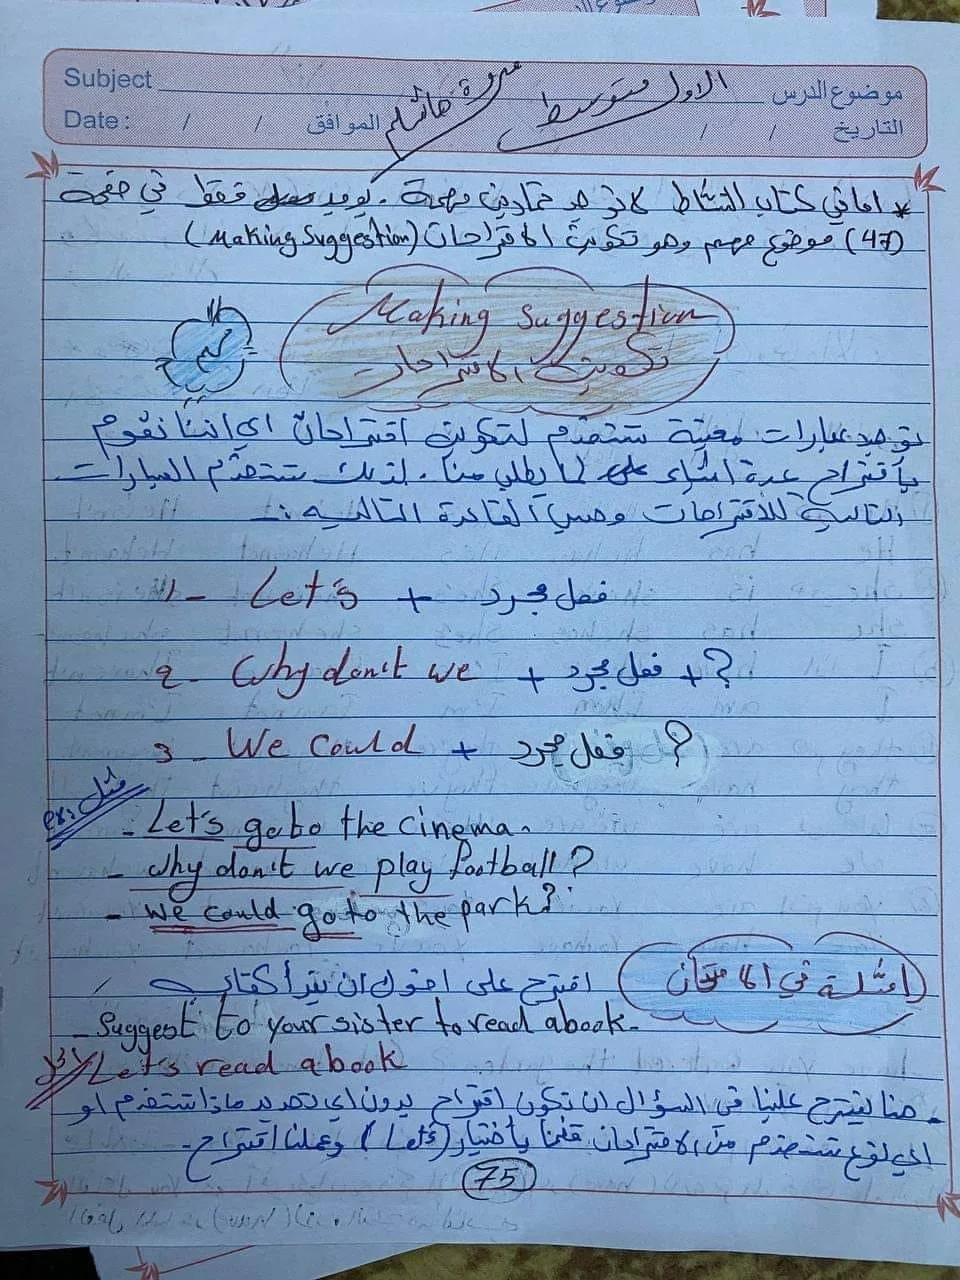 Subject موضوع الدرس
الاول متوسط
Date: / / الموافق / / التاريخ
* اما في كتاب النشاط لا توجد تمارين مهمة. يوجد فقط في صفحة
(47) موضوع مهم وهو تكوين الاقتراحات (Making Suggestion)
Making Suggestion
تكوين الاقتراحات
مهم
توجد عبارات معينة تستخدم لتكوين اقتراحات اي اننا نقوم
بأقتراح عدة اشياء لما يطلب منا. لذلك تستخدم العبارات
التالية للأقتراحات وحسب القاعدة التالية :-
1- Let's + فعل مجرد
2- Why don't we + فعل مجرد + ?
3- We could + فعل مجرد ?
مثل exs
- Let's go to the cinema.
- Why don't we play football?
- We could go to the park?
امثلة في الامتحان
اقترح على اختك ان تقرأ كتاب
- Suggest to your sister to read a book.
Let's read a book
- هنا يقترح علينا في السؤال ان نكون اقتراح بدون اي تحديد ماذا نستخدم او
اي نوع نستخدم من الاقتراحات قمنا بأختيار (Let's) وعملنا اقتراح.
75